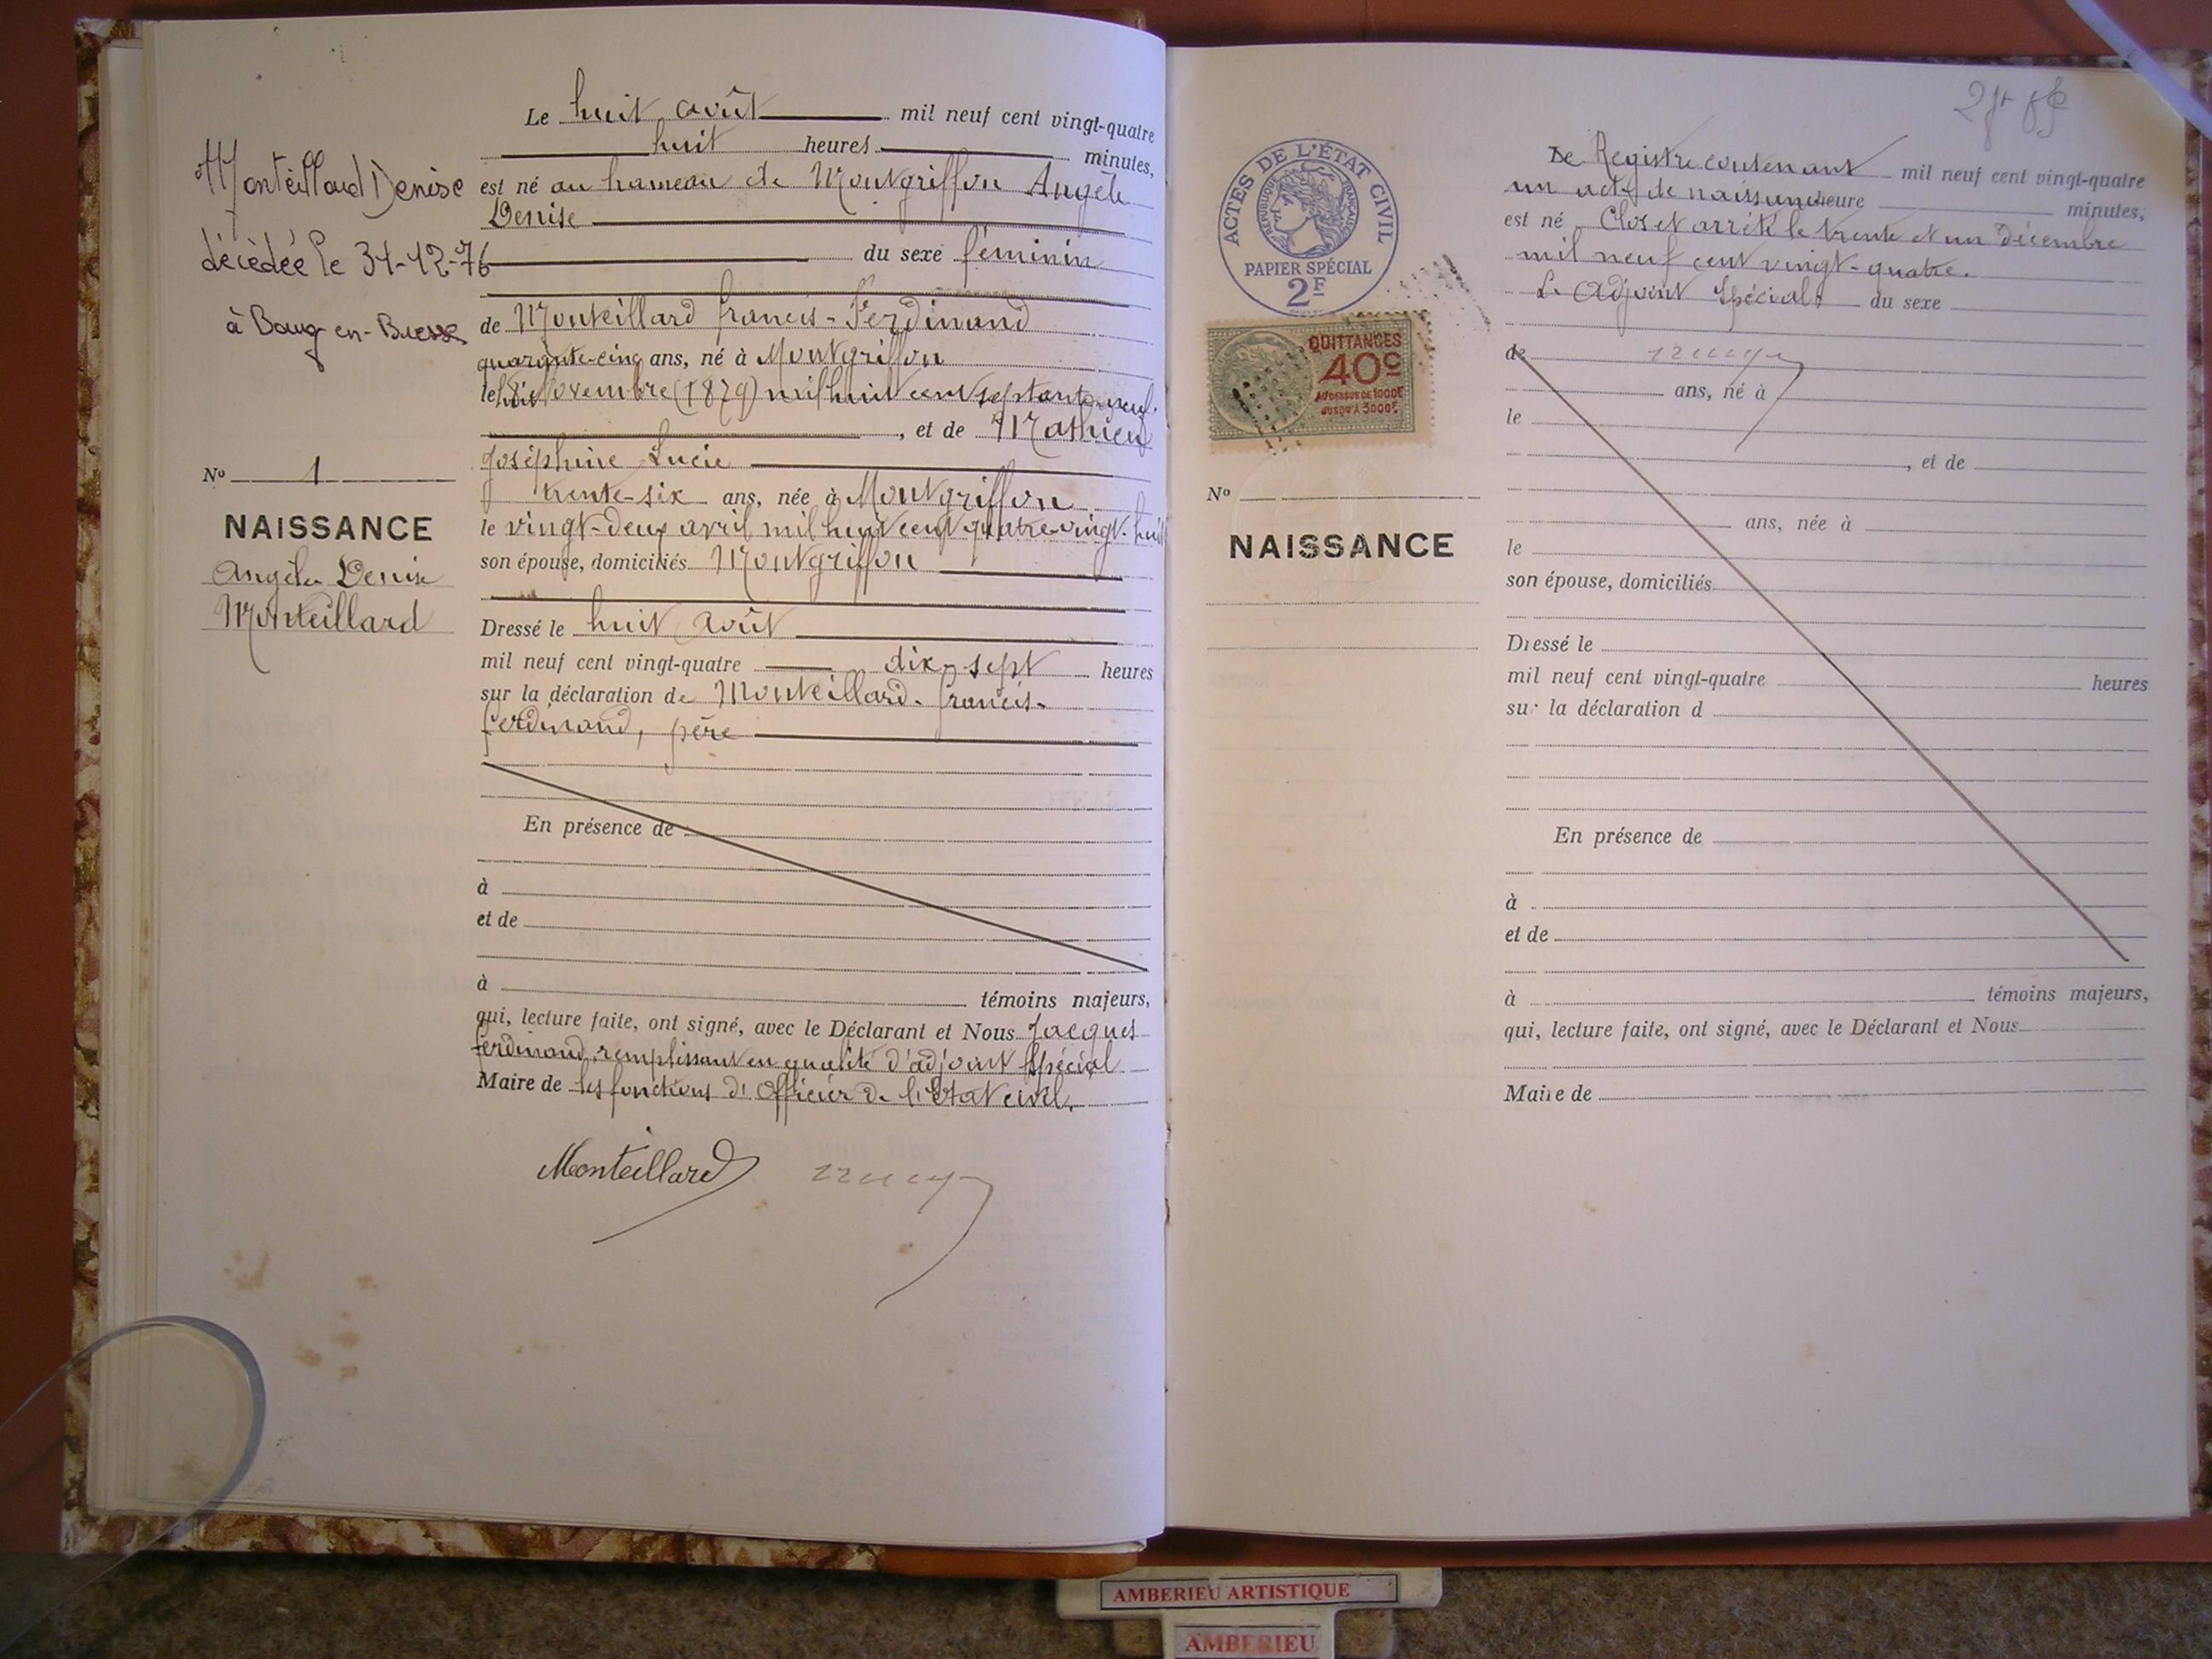 Le huit août mil neuf cent vingt-quatre
huit heures minutes,
est né au hameau de Montgriffon Angèle
Denise
du sexe féminin
de Monteillard francis-Ferdinand
quarante-cinq ans, né à Montgriffon
le huit Novembre (1879) mil huit cent septante-neuf.
, et de Mathieu
Joséphine Lucie
trente-six ans, née à Montgriffon
le vingt-deux avril mil huit cent quatre-vingt-huit
son épouse, domiciliés Montgriffon
Dressé le huit août
mil neuf cent vingt-quatre dix-sept heures
sur la déclaration de Monteillard francis-
ferdinand, père
En présence de
à
et de
à témoins majeurs,
qui, lecture faite, ont signé, avec le Déclarant et Nous Jacques
ferdinand, remplissant en qualité d'adjoint Spécial
Maire de les fonctions d'Officier de l'Etat civil.
Monteillard
Monteillard Denise
décédée le 31-12-76
à Bourg-en-Bresse
No 1
NAISSANCE
Angèle Denise
Monteillard
ACTES DE L'ÉTAT CIVIL
RÉPUBLIQUE FRANÇAISE
PAPIER SPÉCIAL
2F
QUITTANCES
40c
AU DESSUS DE 1000F
JUSQU'À 3000F
No
NAISSANCE
Le Registre contenant mil neuf cent vingt-quatre
un acte de naissance heure minutes,
est né Clos et arrêté le trente et un Décembre
mil neuf cent vingt-quatre.
L'Adjoint Spécial: du sexe
de
ans, né à
le
, et de
ans, née à
le
son épouse, domiciliés
Dressé le
mil neuf cent vingt-quatre heures
sur la déclaration d
En présence de
à
et de
à témoins majeurs,
qui, lecture faite, ont signé, avec le Déclarant et Nous
Maire de
AMBERIEU ARTISTIQUE
AMBERIEU